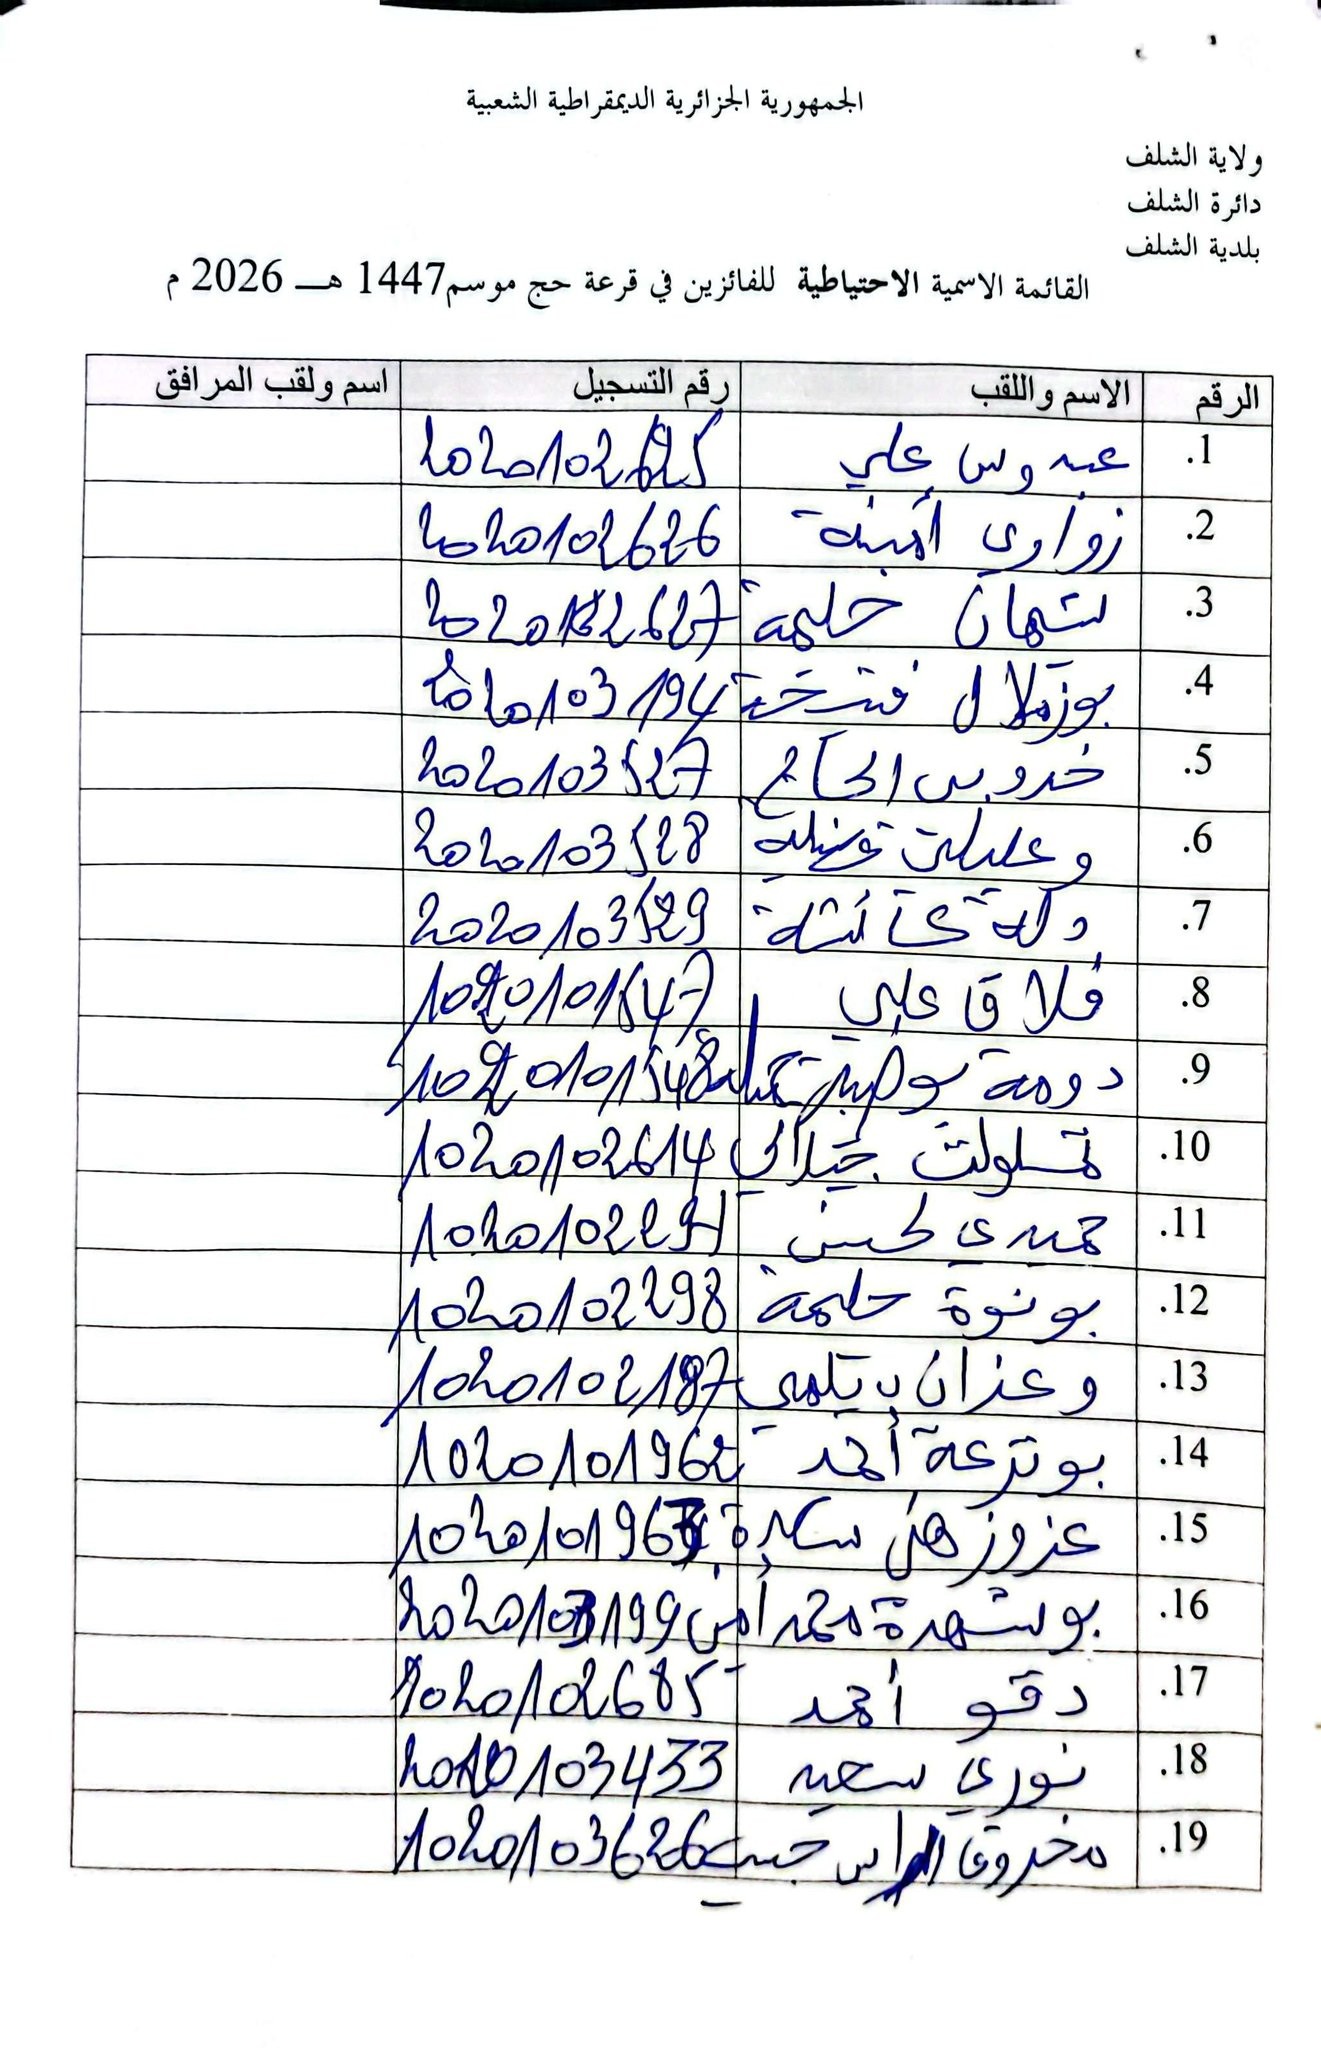 الجمهورية الجزائرية الديمقراطية الشعبية
ولاية الشلف
دائرة الشلف
بلدية الشلف
القائمة الاسمية الاحتياطية للفائزين في قرعة حج موسم1447 هـ 2026 م
الرقم الاسم واللقب رقم التسجيل اسم ولقب المرافق
.1 عبدوس علي 2020102625
.2 زواوي أمينة 2020102626
.3 حليمة 2020102627
.4 2020103194
.5 خدوس الحاج 2020103527
.6 2020103528
.7 عائشة 2020103529
.8 فلاق علي 1020101547
.9 دومة 1020101548
.10 جيلالي 1020102614
.11 حميدي لحسن
.12 بونوة حليمة 1020102298
.13 وعزان 1020102187
.14 بوترعة أحمد 1020101962
.15 عزوز 102010196
.16 بوشهرة محمد أمين 2020103199
.17 دقو أحمد 1020102685
.18 نوري سعيد 103433
.19 مخروق الراس 1020103626